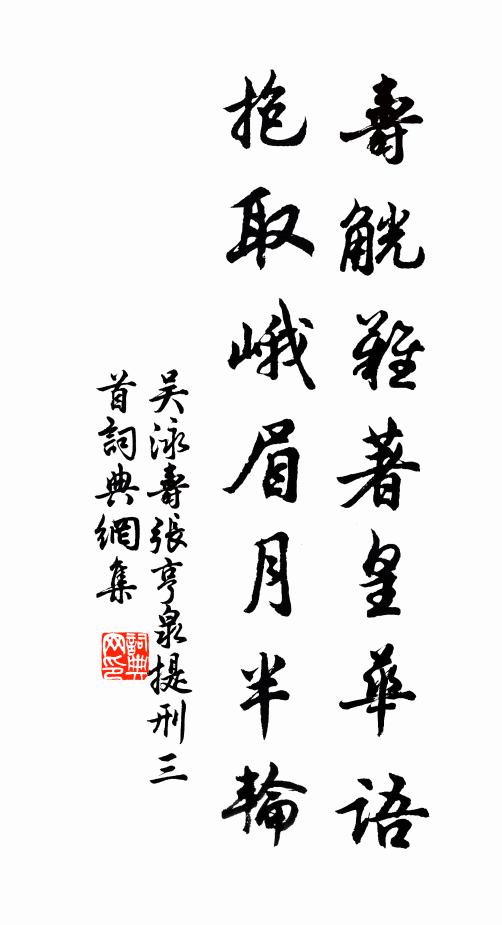 壽觥難著皇華語
抱取峨眉月半輪
吴泳壽張亨泉提刑三
首詞典網集
詞典网印